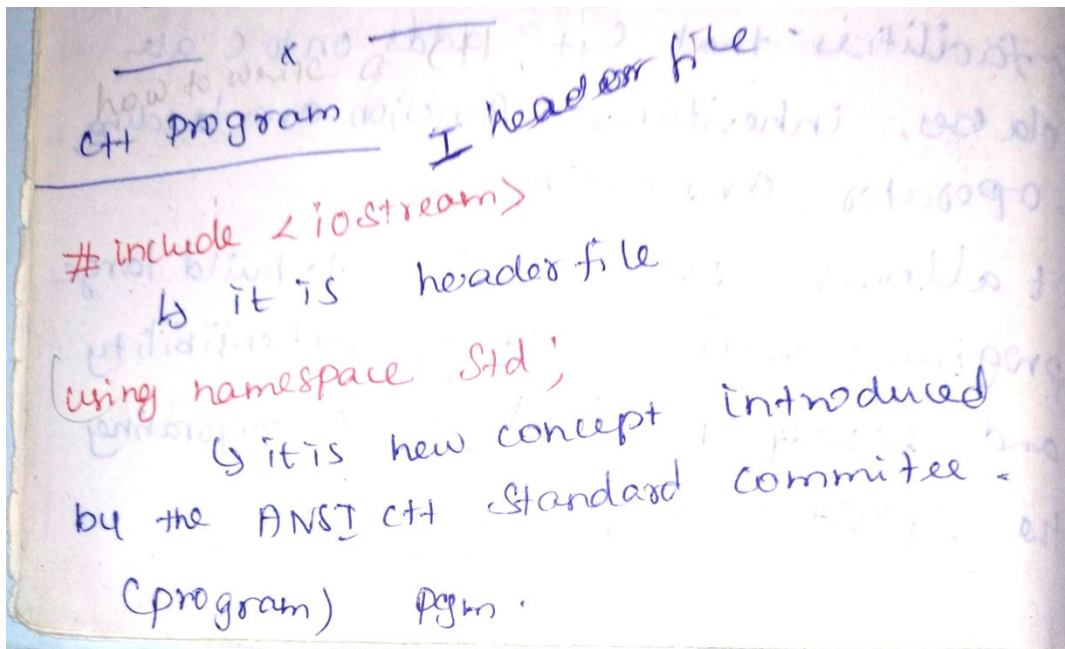 x
how to write a
C++ program
I header file
# include <iostream>
↳ it is header file
(using namespace Std;
↳ it is new concept introduced
by the ANSI C++ Standard commitee.
(program) pgm.